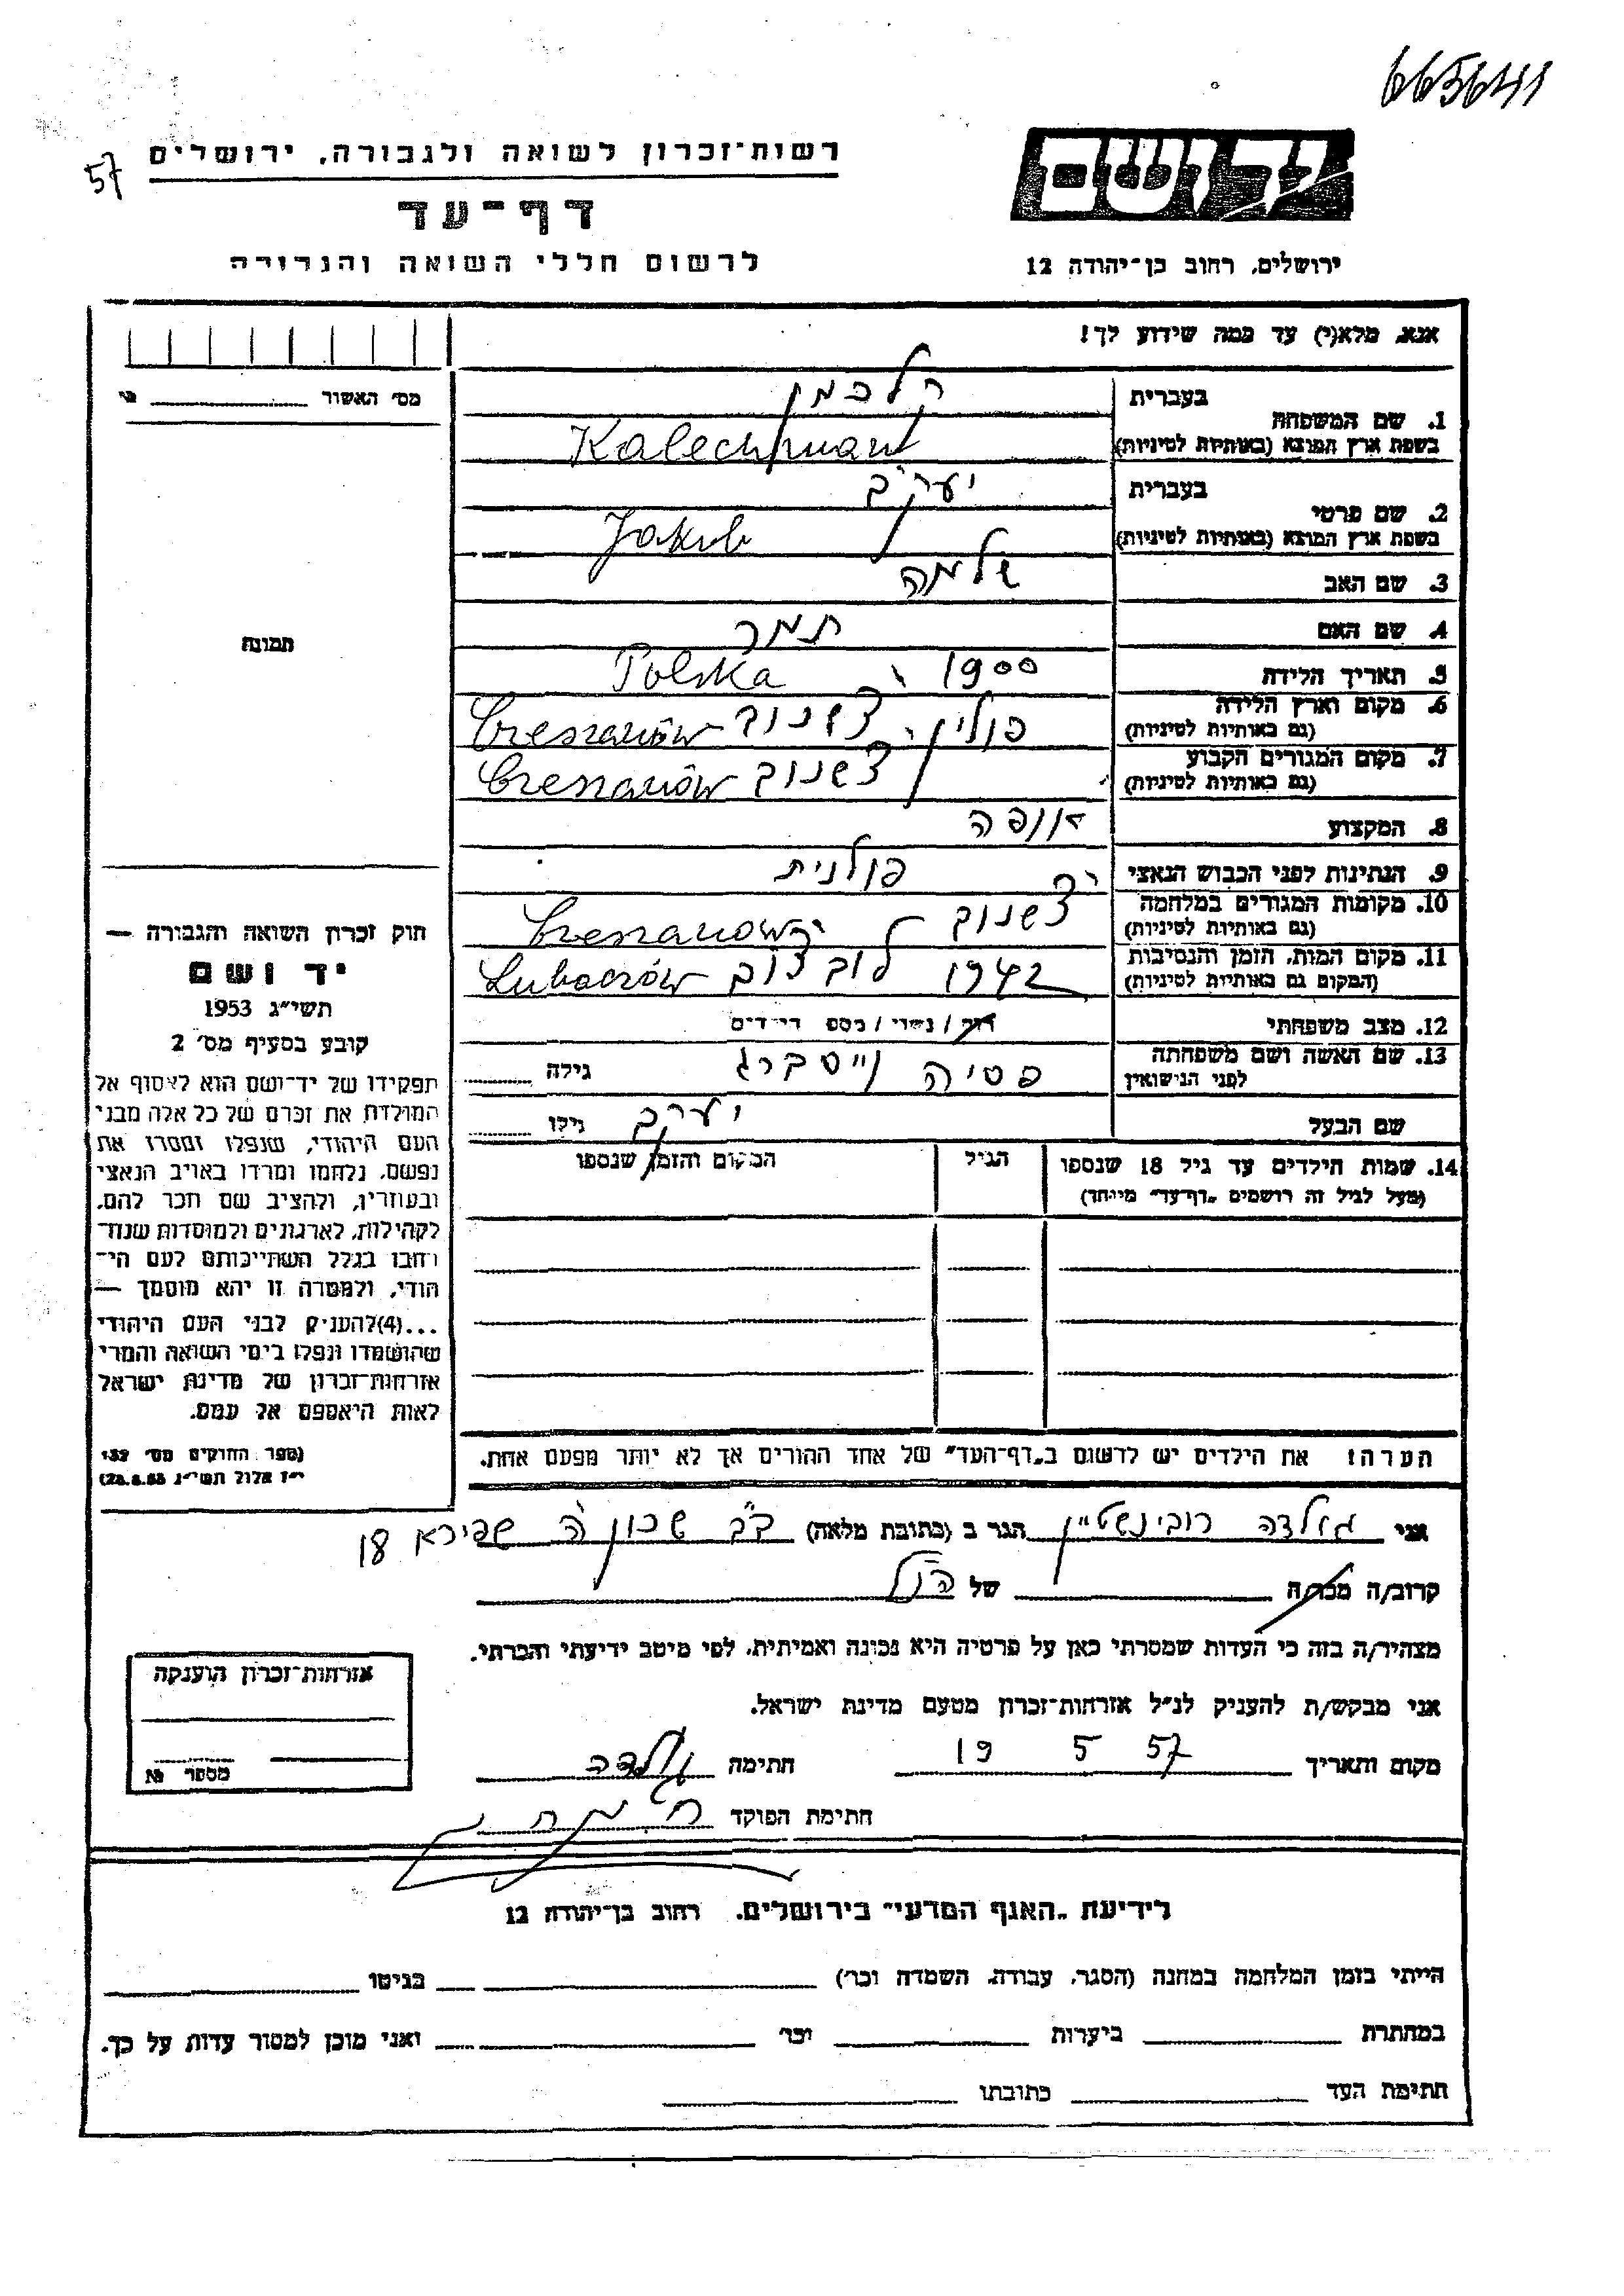 665641
57
רשות־זכרון לשואה ולגבורה, ירושלים
יד ושם
דף־עד
לרשום חללי השואה והגבורה
ירושלים, רחוב בן־יהודה 12
אנא, מלא(י) עד כמה שידוע לך!
מס׳ האשור
1. שם המשפחה
בעברית קלכמן
בשפת ארץ המוצא (באותיות לטיניות) Kalechman
2. שם פרטי
בעברית יעקב
בשפת ארץ המוצא (באותיות לטיניות) Jakub
3. שם האב שלמה
4. שם האם תמר
תמונה
5. תאריך הלידה 1900 Polska
6. מקום וארץ הלידה פולין, צשנוב Czeszanów
(גם באותיות לטיניות)
7. מקום המגורים הקבוע צשנוב Czeszanów
(גם באותיות לטיניות)
8. המקצוע אופה
9. הנתינות לפני הכבוש הנאצי פולנית
10. מקומות המגורים במלחמה צשנוב Czeszanow
(גם באותיות לטיניות)
11. מקום המות, הזמן והנסיבות 1942 Lubaczów
(המקום גם באותיות לטיניות)
12. מצב משפחתי רוק / נשוי / מספר הילדים
13. שם האשה ושם משפחתה פסיה וייסברג גילה
לפני הנישואין
שם הבעל יעקב גילו
14. שמות הילדים עד גיל 18 שנספו הגיל המקום והזמן שנספו
(מעל לגיל זה רושמים „דף־עד״ מיוחד)
חוק זכרון השואה והגבורה —
יד ושם
תשי״ג 1953
קובע בסעיף מס׳ 2
תפקידו של יד־ושם הוא לאסוף אל
המולדת את זכרם של כל אלה מבני
העם היהודי, שנפלו ומסרו את
נפשם, נלחמו ומרדו באויב הנאצי
ובעוזריו, ולהציב שם וזכר להם,
לקהילות, לארגונים ולמוסדות שנח־
רבו בגלל השתייכותם לעם הי־
הודי, ולמטרה זו יהא מוסמך —
...(4)להעניק לבני העם היהודי
שהושמדו ונפלו בימי השואה והמרי
אזרחות־זכרון של מדינת ישראל
לאות היאספם אל עמם.
(ספר החוקים מס׳ 132
י״ז אלול תשי״ג 28.8.53)
הערה: את הילדים יש לרשום ב„דף־העד״ של אחד ההורים אך לא יותר מפעם אחת.
אני גולדה רובינשטיין הגר ב (כתובת מלאה) ב״ב שכון ה׳ שפירא 18
קרוב/ה מכר/ה של הנ״ל
מצהיר/ה בזה כי העדות שמסרתי כאן על פרטיה היא נכונה ואמיתית, לפי מיטב ידיעתי והכרתי.
אני מבקש/ת להעניק לנ״ל אזרחות־זכרון מטעם מדינת ישראל.
מקום ותאריך 19 5 57 חתימה גולדה
חתימת הפוקד
אזרחות־זכרון הוענקה
מספר №
לידיעת „האגף המדעי״ בירושלים, רחוב בן־יהודה 12
הייתי בזמן המלחמה במחנה (הסגר, עבודה, השמדה וכו׳) בגיטו
במחתרת ביערות וכו׳ ואני מוכן למסור עדות על כך.
חתימת העד כתובתו